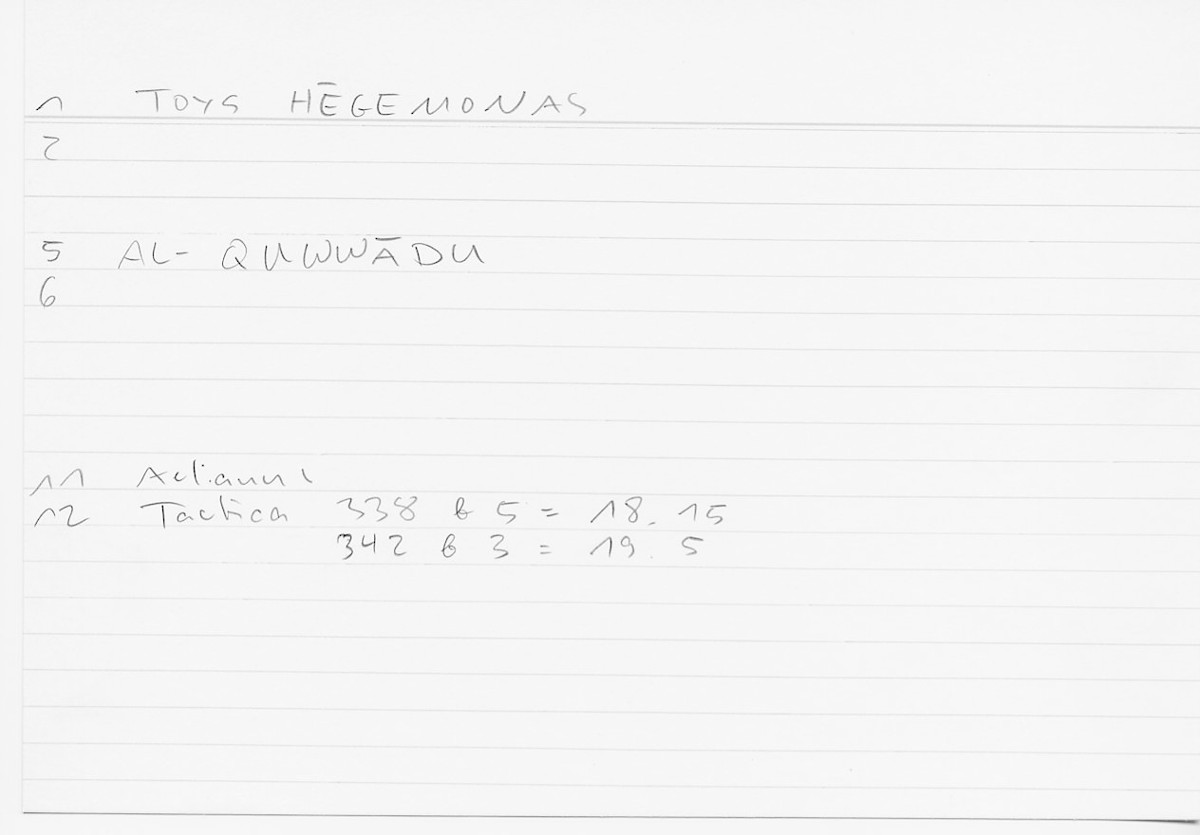 1 TOYS HĒGEMONAS
2
5 AL-QUWWĀDU
6
11 Aelianus
12 Tactica 338 b 5 = 18. 15
342 b 3 = 19. 5